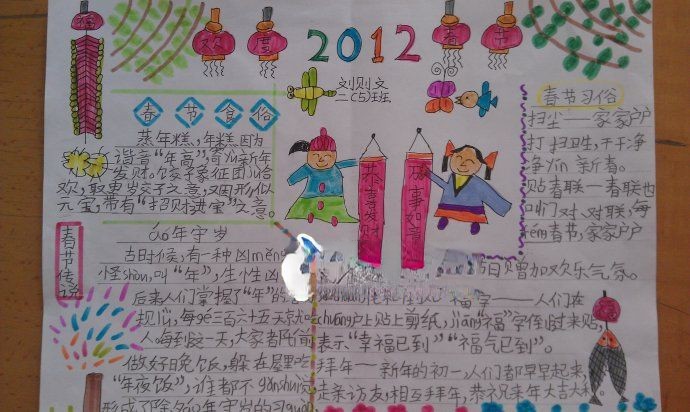 福
欢度
2012
春节
刘则文
二(5)班
春节食俗
蒸年糕、年糕因为
谐音“年高”,
发财。饺子象征团
欢,取更岁交子之意,又因形似
元宝,带有“招财进宝”之意。
恭喜发财
事事如意
春节习俗
扫尘——家家户户
打扫卫生,干干净
净yín新春。
贴春联——春联也
叫门对、对联,每
春节,家家户户
节日增加欢乐气氛。
春节传说
年守岁
古时候,有一种凶měng
怪shòu,叫“年”,生性凶
后来人们掌握了“年”的
规lǜ,每gé三百六十五天
人,每到这一天,大家者
做好晚饭,躲在屋里吃
“年夜饭”,谁都不gǎnshuì
形成了除夕
年守岁的习
福字——人们在
chuāng户上贴上剪纸,jiāng“福”字倒过来贴,
表示“幸福已到”“福气已到”。
拜年——新年的初一,人们都早早起来,
走亲访友,相互拜年,恭祝来年大吉大利。